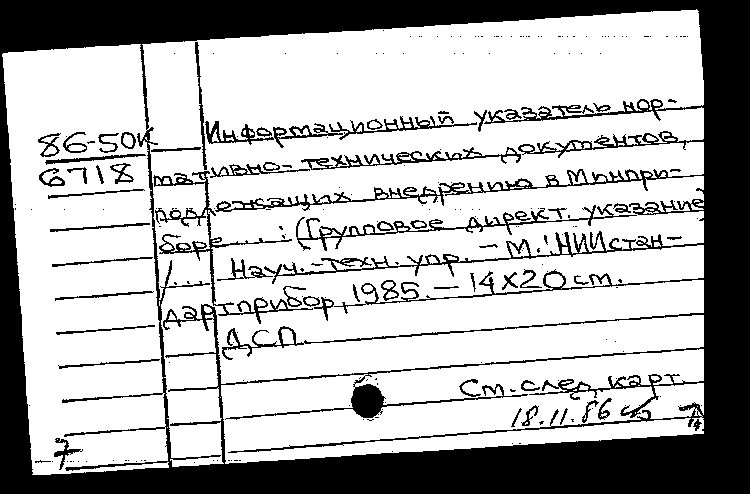 86-50к
6718
Информационный указатель нор-
мативно-технических документов,
подлежащих внедрению в Минпри-
боре ... : (Групповое директ. указание)
/... Науч.-техн. упр. - М.: НИИстан-
дартприбор, 1985. - 14х20 см.
ДСП.
См. след. карт.
18.11.86
7